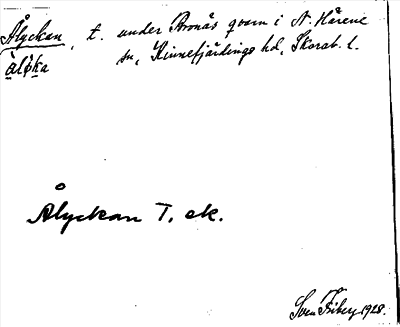 Ålyckan, t. under Bronäs qvarn i N. Härene
àlỳka sn, Kinnefjärdings hd, Skarab. l.
Ålyckan T. ek.
Sven Friberg 1928.